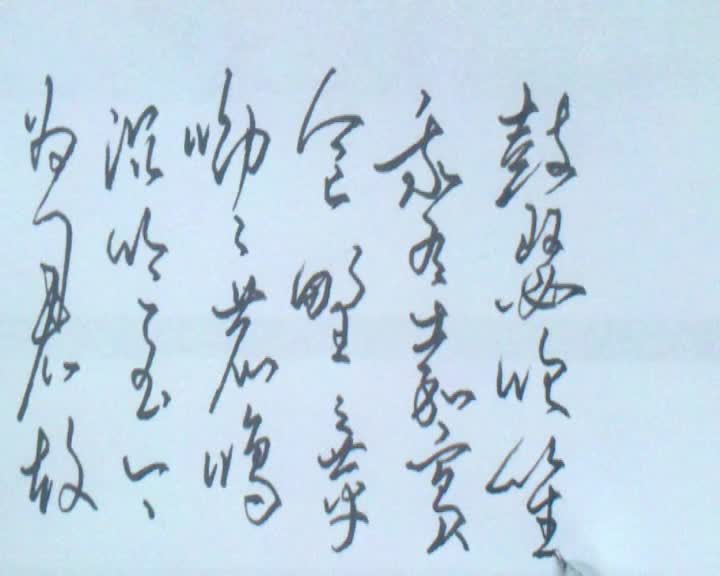 为君故
沉吟至今
呦呦鹿鸣
食野之苹
我有嘉宾
鼓瑟吹笙